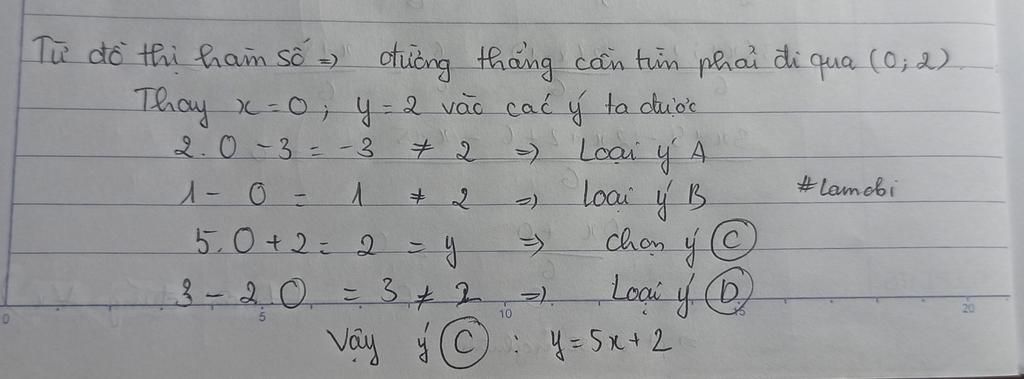 Từ đồ thị hàm số => đường thẳng cần tìm phải đi qua (0; 2)
Thay x = 0 ; y = 2 vào các ý ta được
2. 0 - 3 = -3 ≠ 2 => Loại ý A
1 - 0 = 1 ≠ 2 => Loại ý B #lamobi
5. 0 + 2 = 2 = y => chọn ý C
3 - 2 0 = 3 ≠ 2 => Loại ý D
0 5 10 15 20
Vậy ý C : y = 5x + 2